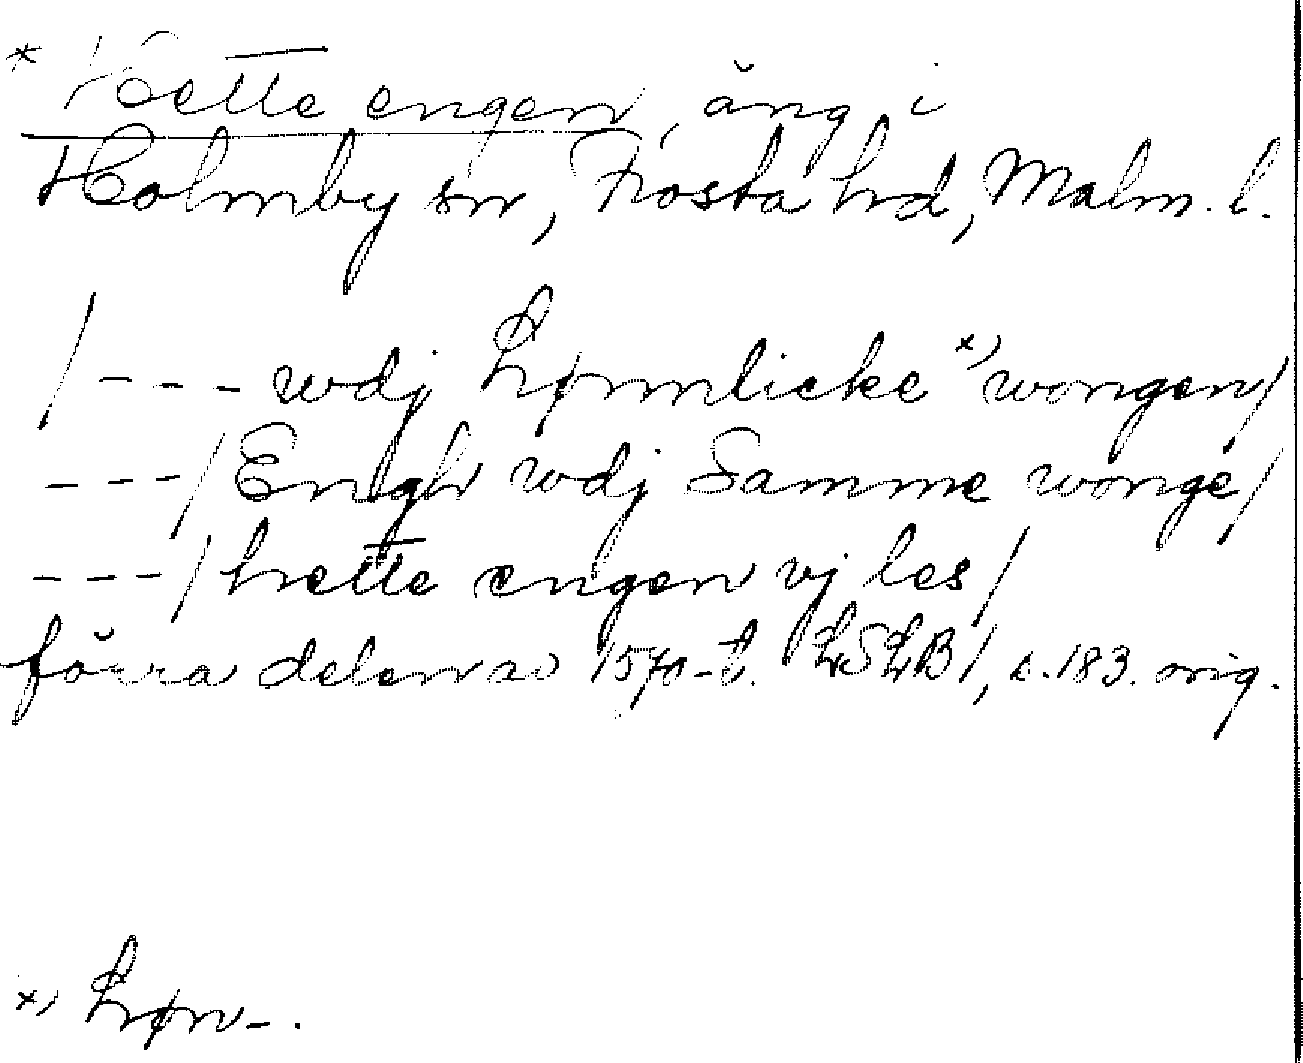 * Hette engen, äng i
Holmby sn, Frosta hrd, Malm. l.
/ - - - wdj Lørnlicke x) wongen/
- - - / Engh wdj Samme wonge/
- - - / hette engen vj les/
förra delen av 1570-t. LSLB 1, s. 183. orig.
x) Lørn-.